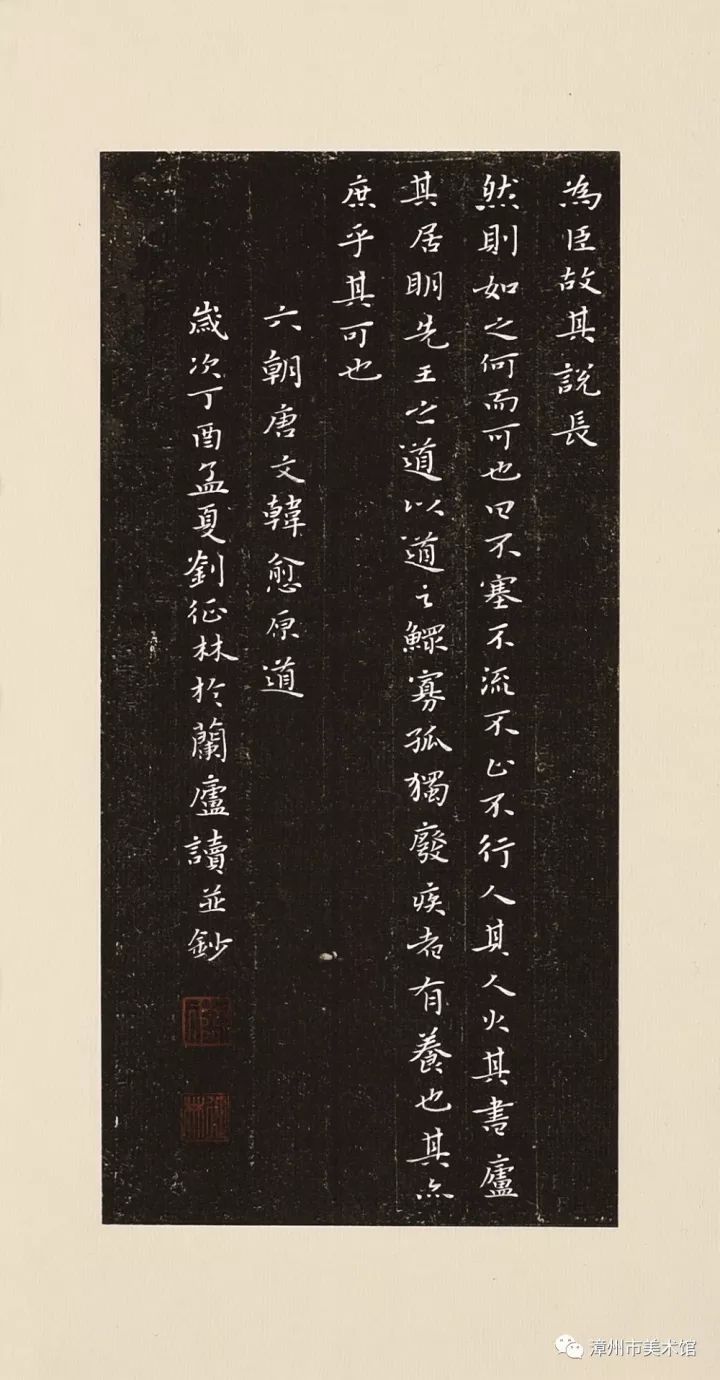 為臣故其說長
然則如之何而可也曰不塞不流不止不行人其人火其書廬
其居明先王之道以道之鰥寡孤獨廢疾者有養也其亦
庶乎其可也
六朝唐文韓愈原道
歲次丁酉孟夏劉征林於蘭廬讀並鈔
漳州市美术馆